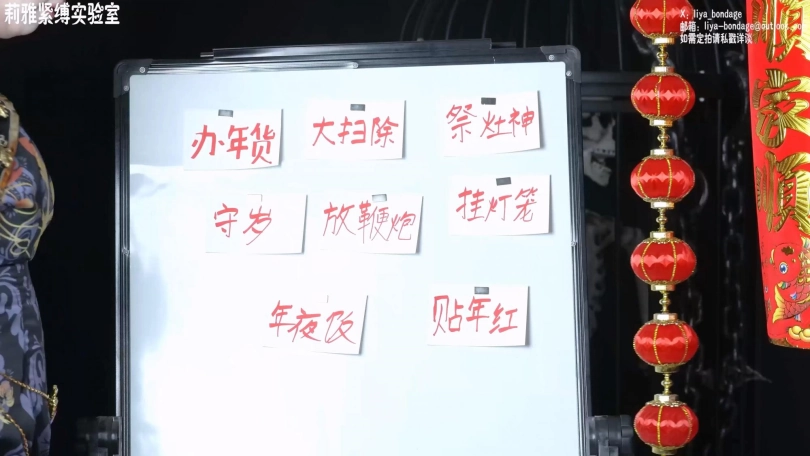 莉雅紧缚实验室
X: liya_bondage
邮箱: liya-bondage@outlook.co
如需定拍请私戳详谈
办年货
大扫除
祭灶神
守岁
放鞭炮
挂灯笼
年夜饭
贴年红
顺
家
顺